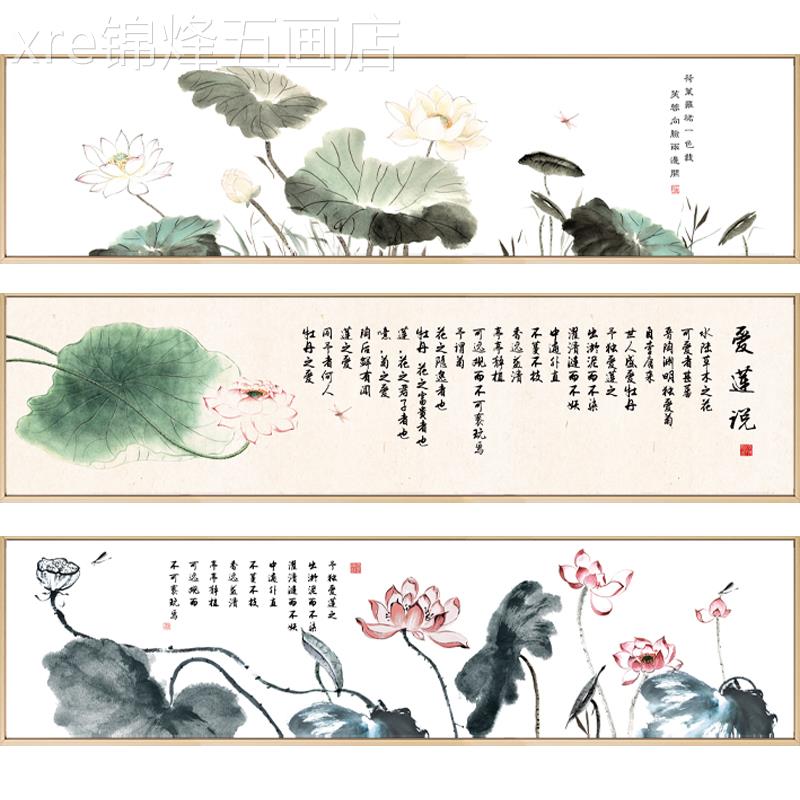 xre锦烽五画店
荷葉羅裙一色裁
芙蓉向臉兩邊開
爱莲说
水陆草木之花
可爱者甚蕃
晋陶渊明独爱菊
自李唐来
世人盛爱牡丹
予独爱莲之
出淤泥而不染
濯清涟而不妖
中通外直
不蔓不枝
香远益清
亭亭静植
可远观而不可亵玩焉
予谓菊
花之隐逸者也
牡丹 花之富贵者也
莲,花之君子者也
噫,菊之爱
陶后鲜有闻
莲之爱
同予者何人
牡丹之爱
予独爱莲之
出淤泥而不染
濯清涟而不妖
中通外直
不蔓不枝
香远益清
亭亭静植
可远观而
不可亵玩焉